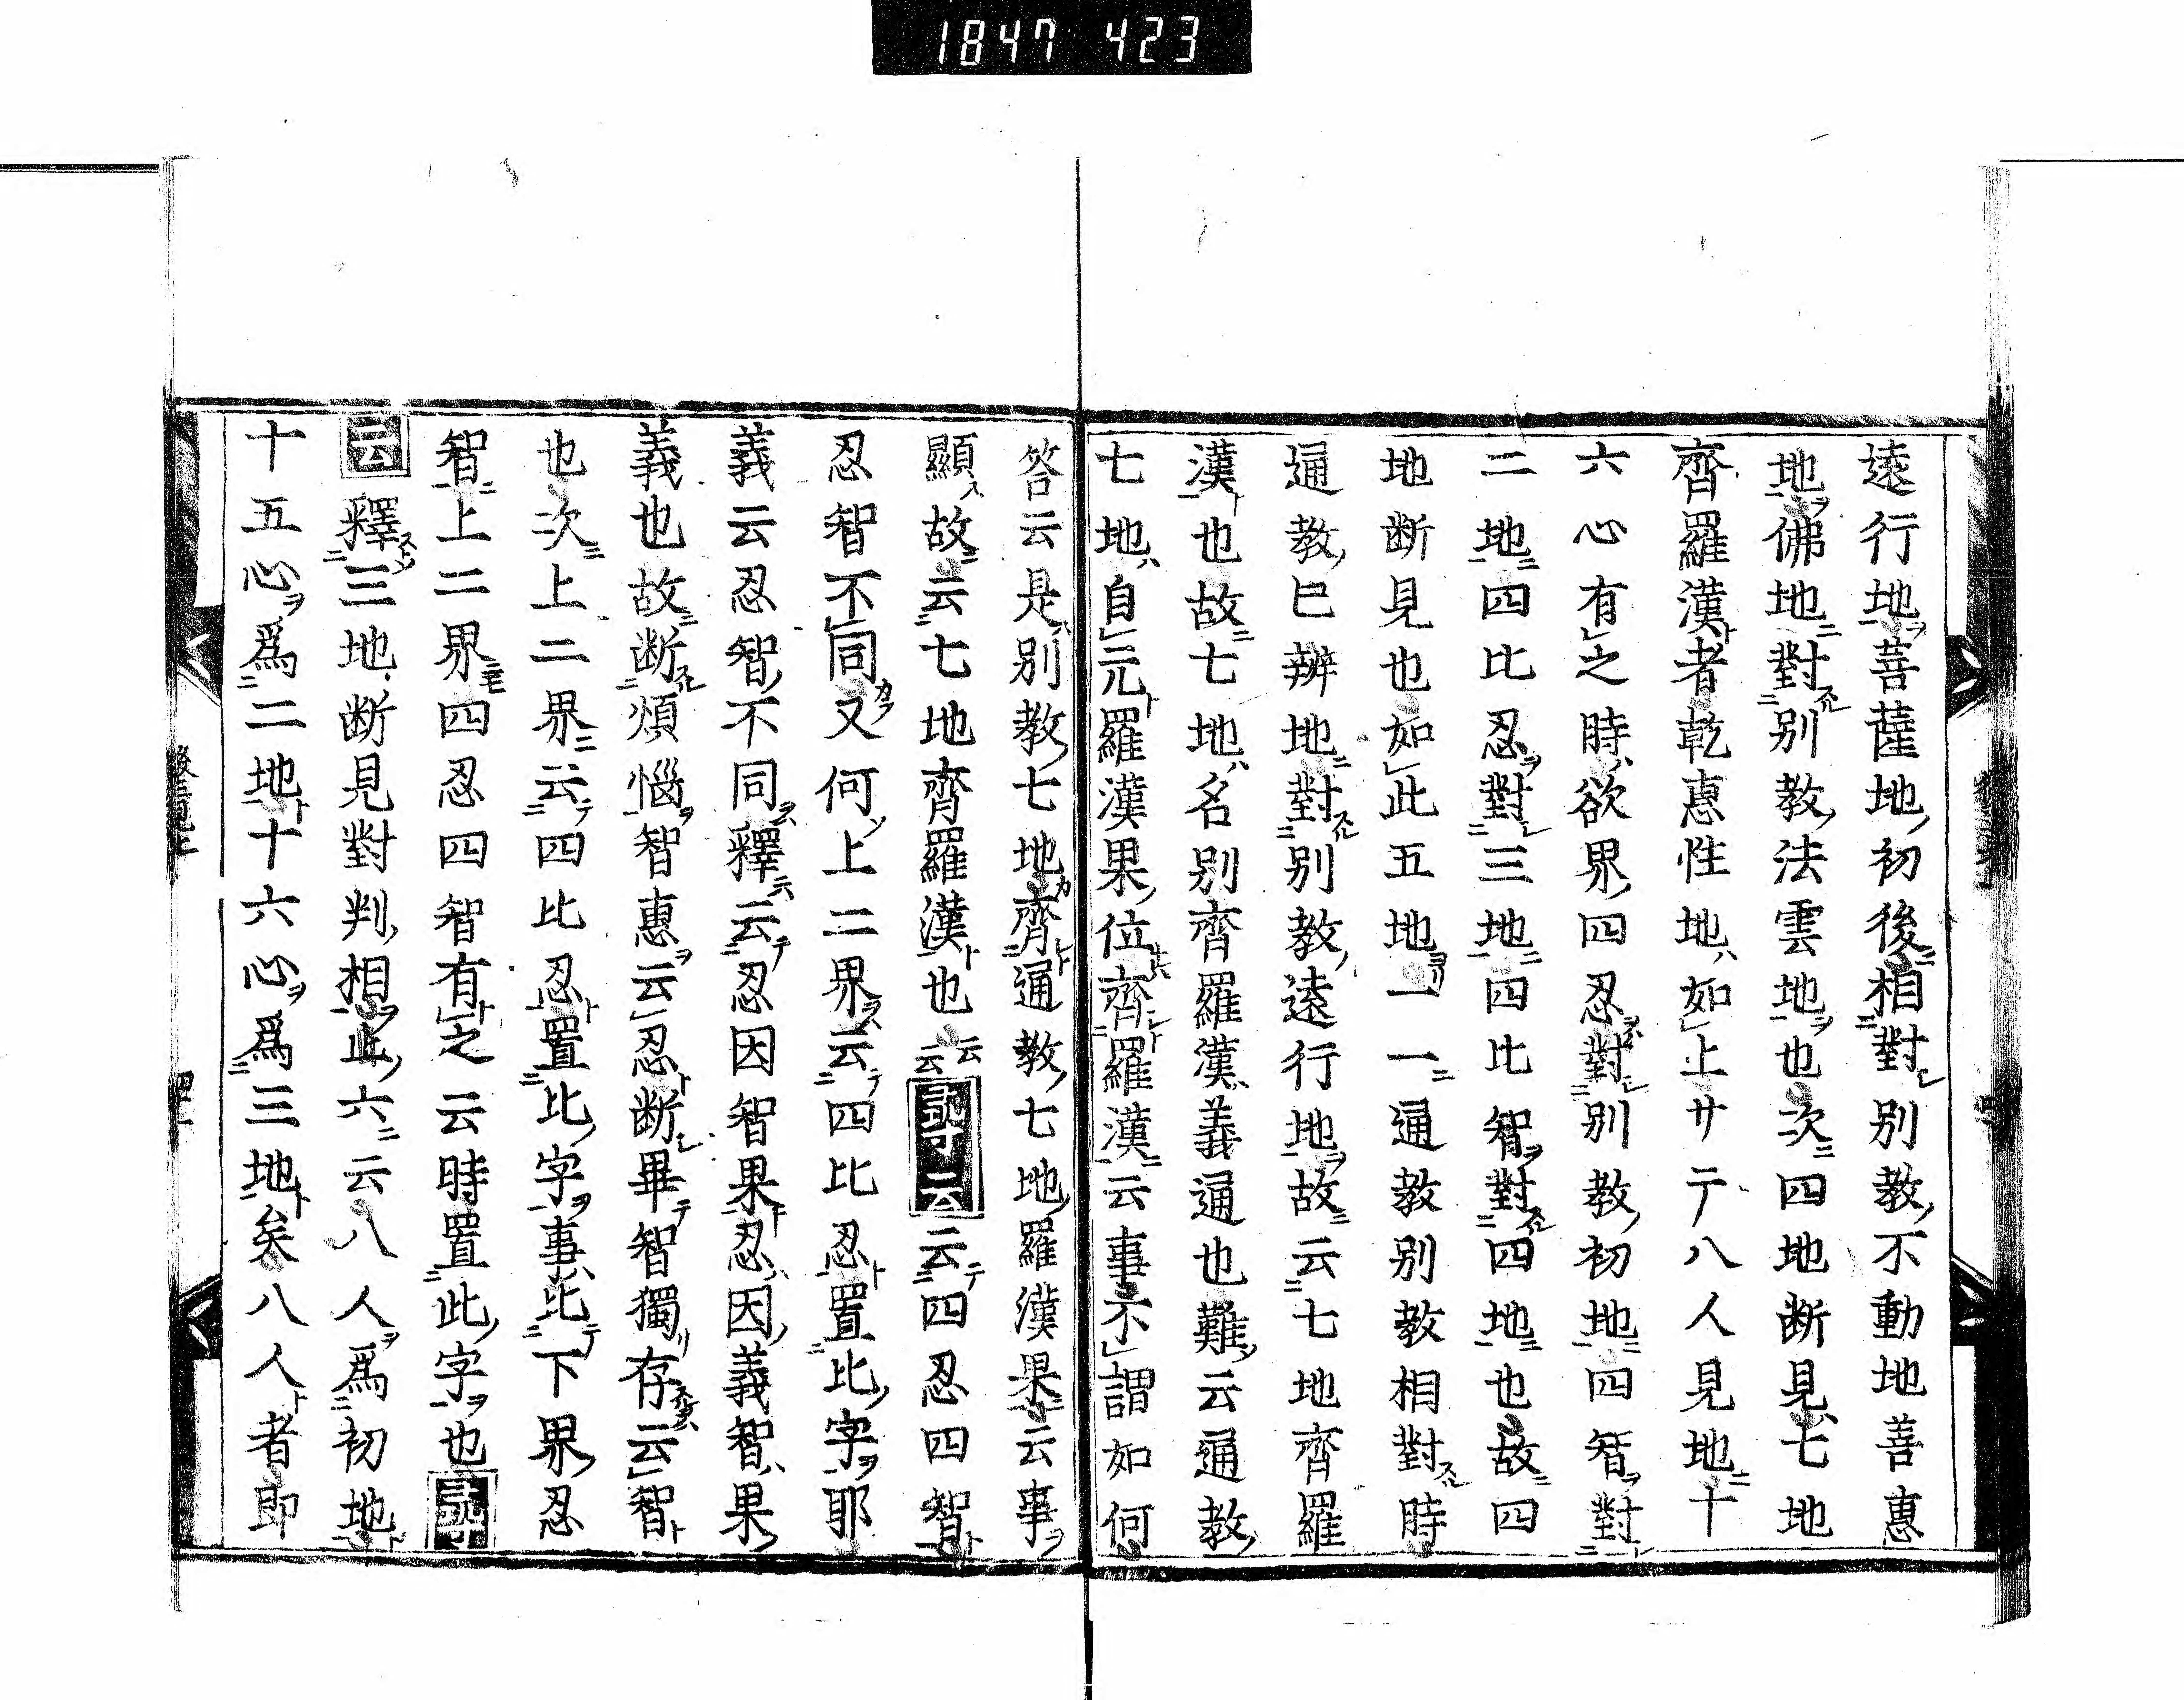 1847 423
遠行地菩薩地初後相對別教不動地善惠
地佛地對別教法雲地也次四地断見七地
齊羅漢者乾惠性地如上廿二丁八人見地十
六心有之時欲界四忍對別教初地四智對
二地四比忍對三地四比智對四地也故四
地断見也如此五地一一通教別教相對時
通教已辨地對別教遠行地故云七地齊羅
漢也故七地名別齊羅漢義通也難云通教
七地自元羅漢果位齊羅漢云事不謂如何
答云是別教七地齊通教七地羅漢果云事
顯故云七地齊羅漢也云云尋云云四忍四智
忍智不同又何上二界云四比忍置比字耶
義云忍智不同釋云忍因智果忍因義智果
義也故断煩惱智惠云忍断畢智獨存云智
也次上二界云四比忍置比字事比下界忍
智上二界四忍四智有之云時置此字也尋
云釋三地断見對判相此六云八人爲初地
十五心爲二地十六心爲三地矣八人者即